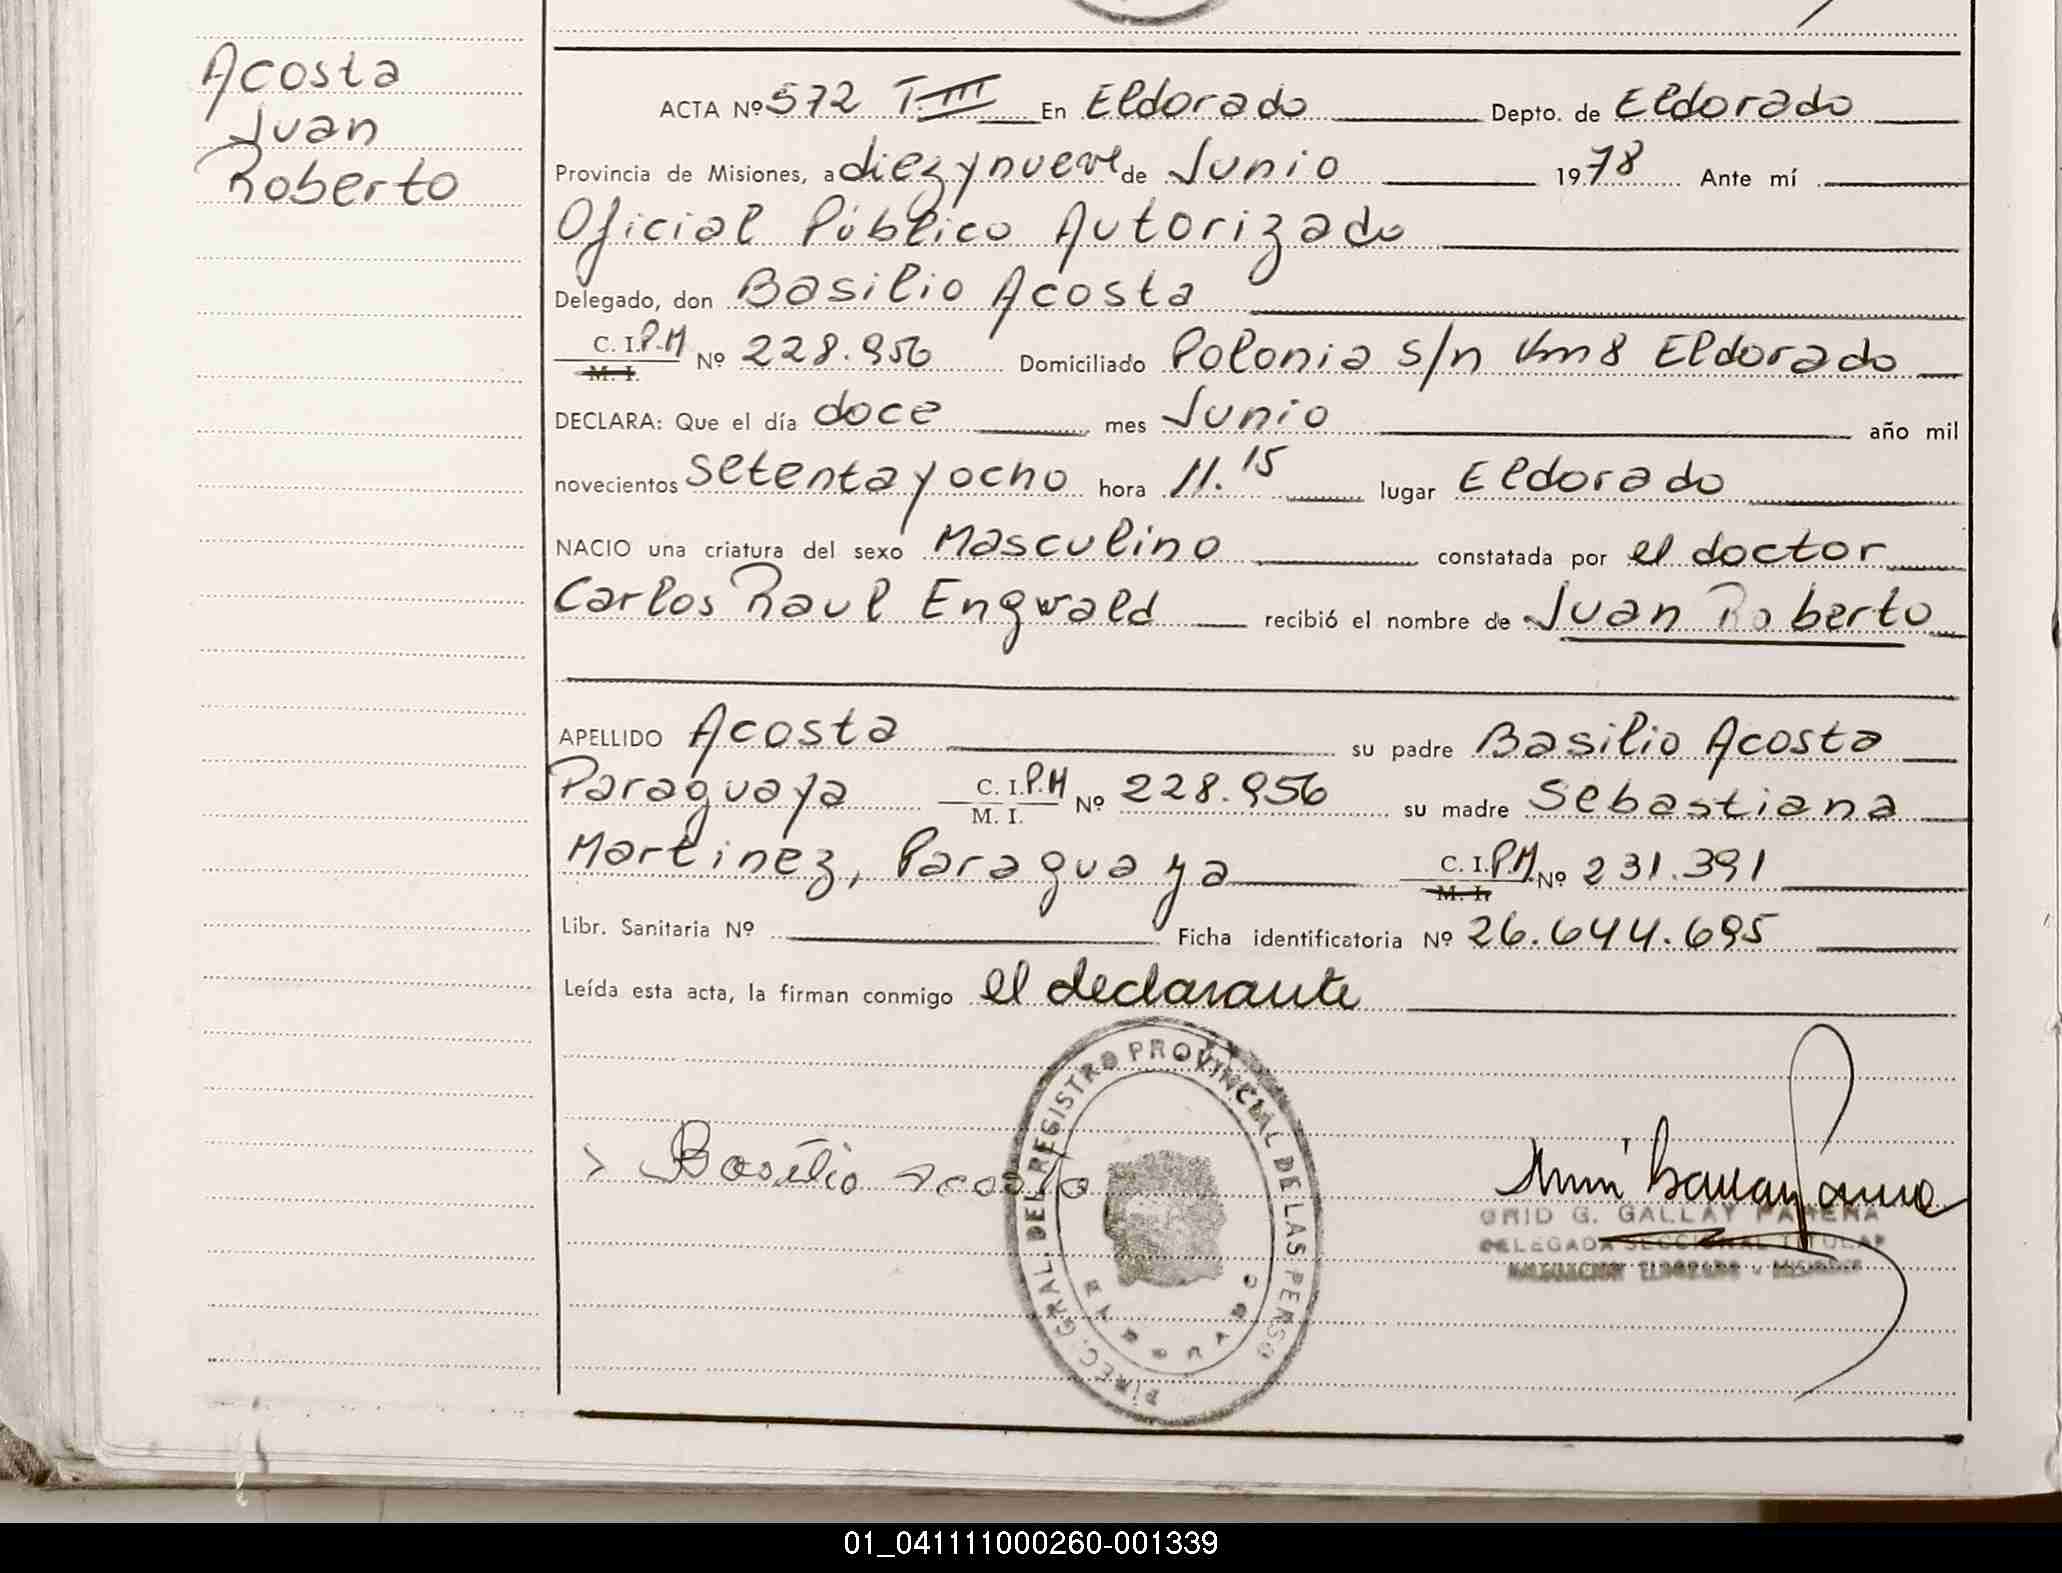 Acosta
Juan
Roberto
ACTA Nº 572 T.III En Eldorado Depto. de Eldorado
Provincia de Misiones, a diez y nueve de Junio 1978 Ante mí
Oficial Público Autorizado
Delegado, don Basilio Acosta
C. I. P.M Nº 228.956 Domiciliado Polonia s/n Km 8 Eldorado
M. I.
DECLARA: Que el día doce mes Junio año mil
novecientos setenta y ocho hora 11.15 lugar Eldorado
NACIO una criatura del sexo Masculino constatada por el doctor
Carlos Raul Engwald recibió el nombre de Juan Roberto
APELLIDO Acosta su padre Basilio Acosta
Paraguaya C. I. P.M Nº 228.956 su madre Sebastiana
M. I.
Martinez, Paraguaya C. I. P.M. Nº 231.391
M. I.
Libr. Sanitaria Nº Ficha identificatoria Nº 26.644.695
Leída esta acta, la firman conmigo el declarante
DIREC. GRAL. DEL REGISTRO PROVINCIAL DE LAS PERSO
ELDORADO
Basilio Acosta
GRID G. GALLAY PARERA
DELEGADA SECCIONAL TITULAR
01_041111000260-001339